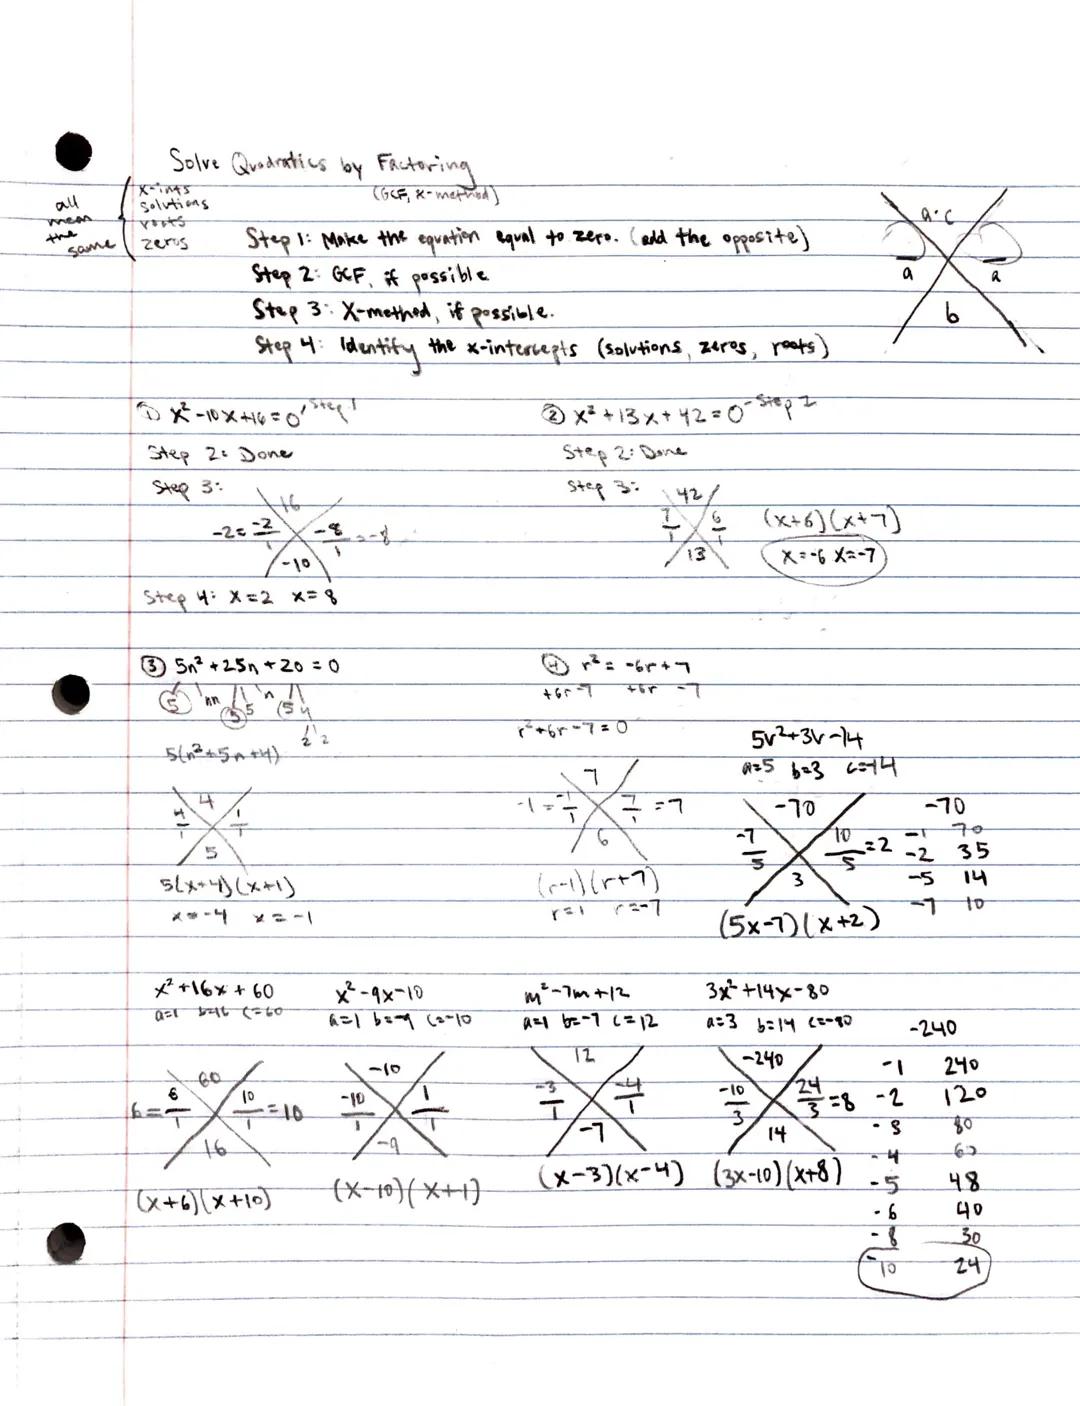 Solve Quadratics by Factoring
(GCF, x-method)
all mean the same
x-ints
solutions
roots
zeros
Step 1: Make the equation equal to zero. (add the opposite)
Step 2: GCF, if possible
Step 3: X-method, if possible.
Step 4: Identify the x-intercepts (solutions, zeros, roots)
a·c
a a
b
① x² -10x +16 = 0 Step 1
Step 2: Done
Step 3:
16
-2 = -2/1 -8/1 = -8
-10
Step 4: x = 2 x = 8
② x² + 13x + 42 = 0 - Step 1
Step 2: Done
Step 3:
42
7/1 6/1
13
(x+6)(x+7)
x=-6 x=-7
③ 5n² + 25n + 20 = 0
5 nn 5 5 n 5 4
2 2
5(n² + 5n + 4)
4
4/1 1/1
5
5(x+4)(x+1)
x = -4 x = -1
④ r² = -6r + 7
+6r -7 +6r -7
r² + 6r - 7 = 0
7
-1 = -1/1 7/1 = 7
6
(r-1)(r+7)
r=1 r=-7
5v² + 3v - 14
a=5 b=3 c=-14
-70
-7/5 10/5 = 2
3
(5x-7)(x+2)
-70
-1 70
-2 35
-5 14
-7 10
x² + 16x + 60
a=1 b=16 c=60
60
6 = 6/1 10/1 = 10
16
(x+6)(x+10)
x² - 9x - 10
a=1 b=-9 c=-10
-10
-10/1 1/1
-9
(x-10)(x+1)
m² - 7m + 12
a=1 b=-7 c=12
12
-3/1 -4/1
-7
(x-3)(x-4)
3x² + 14x - 80
a=3 b=14 c=-80
-240
-10/3 24/3 = 8
14
(3x-10)(x+8)
-240
-1 240
-2 120
-3 80
-4 60
-5 48
-6 40
-8 30
-10 24